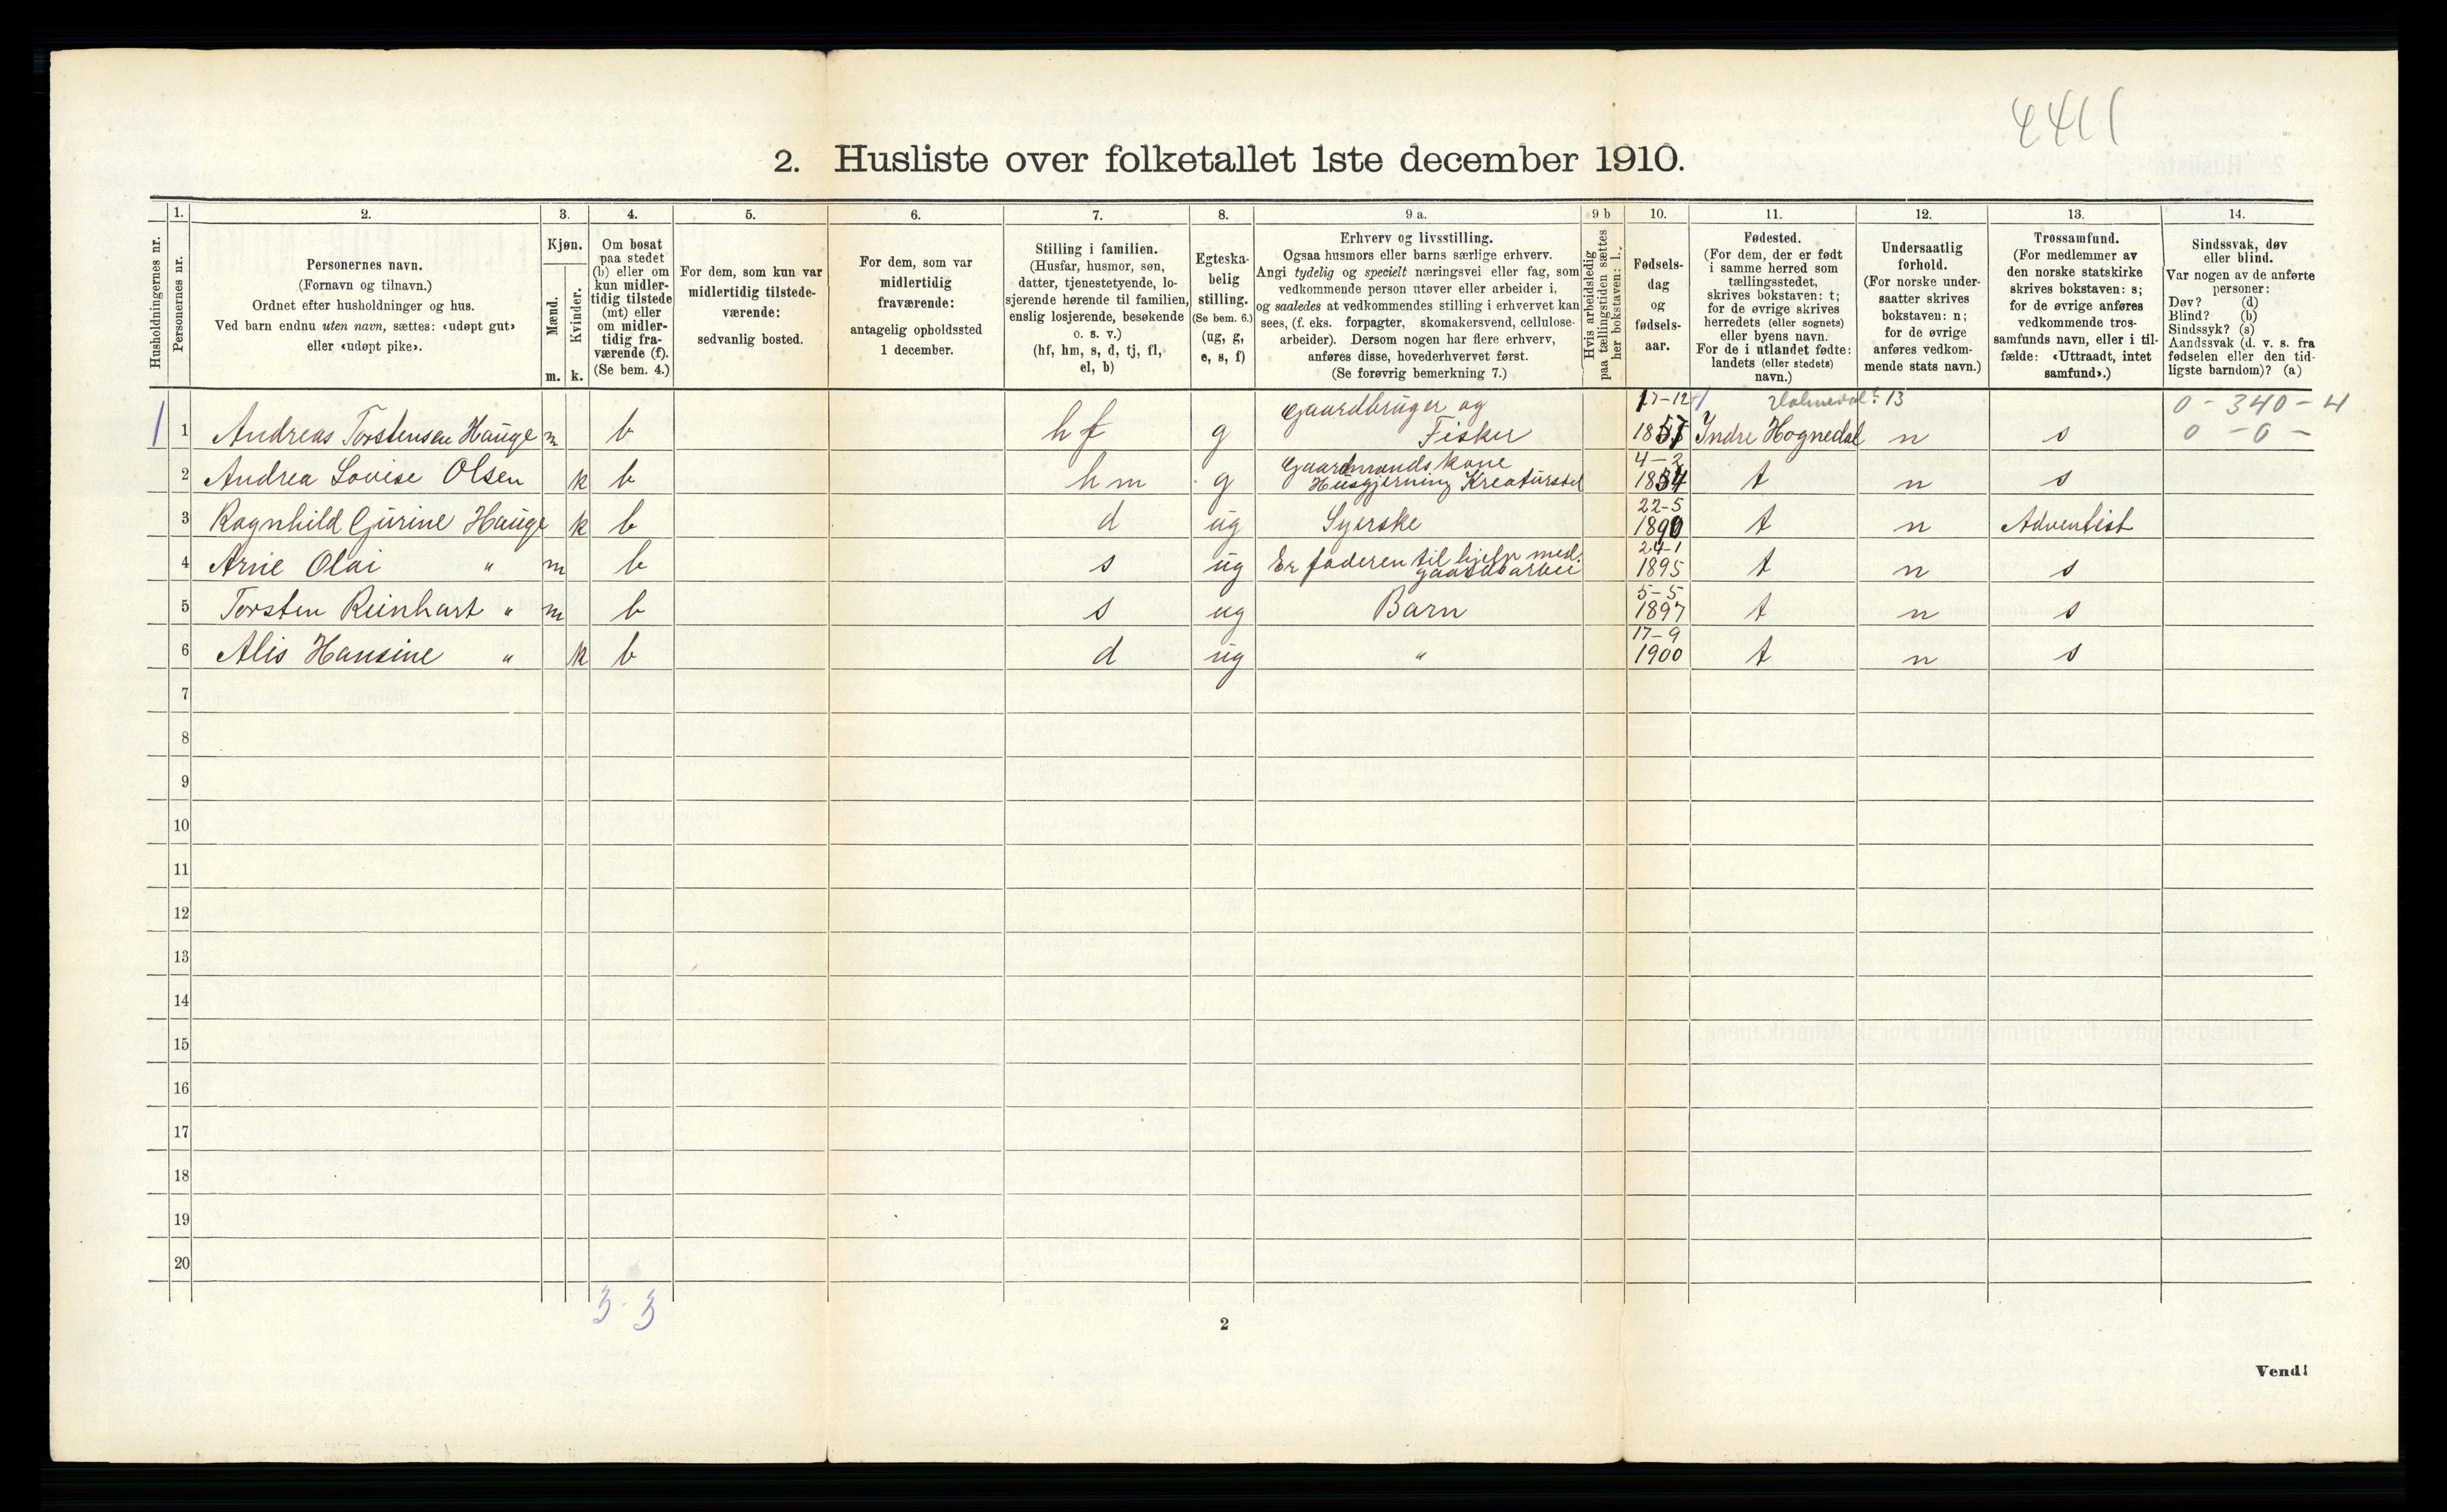 4411
2. Husliste over folketallet 1ste december 1910.
Husholdningernes nr.
1.
Personernes nr.
2.
Personernes navn.
(Fornavn og tilnavn.)
Ordnet efter husholdninger og hus.
Ved barn endnu uten navn, sættes: «udøpt gut»
eller «udøpt pike».
3.
Kjøn.
Mænd.
Kvinder.
m. k.
4.
Om bosat
paa stedet
(b) eller om
kun midler-
tidig tilstede
(mt) eller
om midler-
tidig fra-
værende (f).
(Se bem. 4.)
5.
For dem, som kun var
midlertidig tilstede-
værende:
sedvanlig bosted.
6.
For dem, som var
midlertidig
fraværende:
antagelig opholdssted
1 december.
7.
Stilling i familien.
(Husfar, husmor, søn,
datter, tjenestetyende, lo-
sjerende hørende til familien,
enslig losjerende, besøkende
o. s. v.)
(hf, hm, s, d, tj, fl,
el, b)
8.
Egteska-
belig
stilling.
(Se bem. 6.)
(ug, g,
e, s, f)
9 a.
Erhverv og livsstilling.
Ogsaa husmors eller barns særlige erhverv.
Angi tydelig og specielt næringsvei eller fag, som
vedkommende person utøver eller arbeider i,
og saaledes at vedkommendes stilling i erhvervet kan
sees, (f. eks. forpagter, skomakersvend, cellulose-
arbeider). Dersom nogen har flere erhverv,
anføres disse, hovederhvervet først.
(Se forøvrig bemerkning 7.)
9 b
Hvis arbeidsledig
paa tællingstiden sættes
her bokstaven: l.
10.
Fødsels-
dag
og
fødsels-
aar.
11.
Fødested.
(For dem, der er født
i samme herred som
tællingsstedet,
skrives bokstaven: t;
for de øvrige skrives
herredets (eller sognets)
eller byens navn.
For de i utlandet fødte:
landets (eller stedets)
navn.)
12.
Undersaatlig
forhold.
(For norske under-
saatter skrives
bokstaven: n;
for de øvrige
anføres vedkom-
mende stats navn.)
13.
Trossamfund.
(For medlemmer av
den norske statskirke
skrives bokstaven: s;
for de øvrige anføres
vedkommende tros-
samfunds navn, eller i til-
fælde: «Uttraadt, intet
samfund».)
14.
Sindssvak, døv
eller blind.
Var nogen av de anførte
personer:
Døv? (d)
Blind? (b)
Sindssyk? (s)
Aandssvak (d. v. s. fra
fødselen eller den tid-
ligste barndom)? (a)
Gaardbruger og 17-12 13 0 - 340 - 4
1 1 Andreas Torstensen Hauge m b hf g Fisker 1857 Indre Hognedal n s 0 - 0 -
Gaardmandskone 4-2
2 Andrea Lovise Olsen k b hm g Husgjerning Kreaturstel 1854 t n s
22-5
3 Ragnhild Gurine Hauge k b d ug Syerske 1890 t n Adventist
Er faderen til hjelp med 24-1
4 Arne Olai " m b s ug gaardsarbei 1895 t n s
5-5
5 Torsten Reinhart " m b s ug Barn 1897 t n s
17-9
6 Alis Hansine " k b d ug " 1900 t n s
7
8
9
10
11
12
13
14
15
16
17
18
19
20
3 - 3
2
Vend!